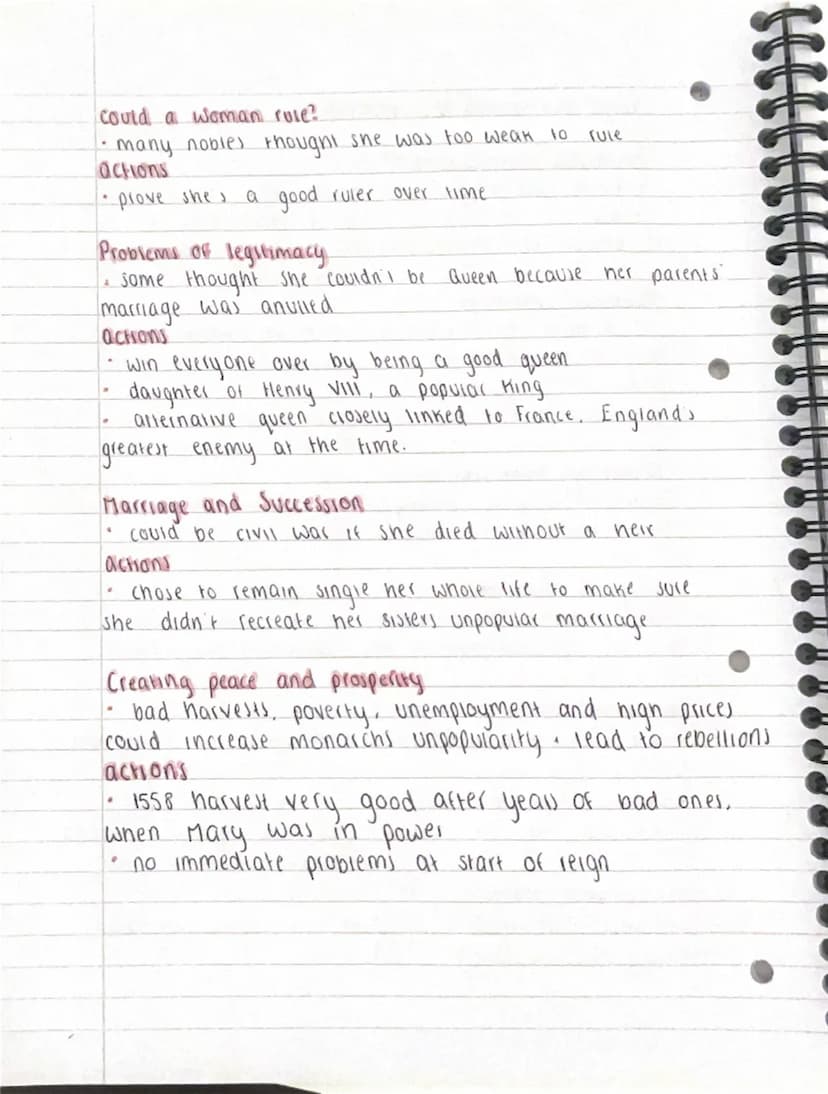 Could a woman rule?
• many nobles thought she was too weak to rule
actions
• prove she's a good ruler over time
Problems of legitimacy
• some thought she couldn't be Queen because her parents'
marriage was anulled
actions
• win everyone over by being a good queen
• daughter of Henry VIII, a popular King
• alternative queen closely linked to France. England's
greatest enemy at the time.
Marriage and Succession
• could be civil war if she died without a heir
actions
• chose to remain single her whole life to make sure
she didn't recreate her sisters unpopular marriage
Creating peace and prosperity
• bad harvests, poverty, unemployment and high prices
could increase monarchs unpopularity • lead to rebellions
actions
• 1558 harvest very good after years of bad ones,
when Mary was in power
• no immediate problems at start of reign